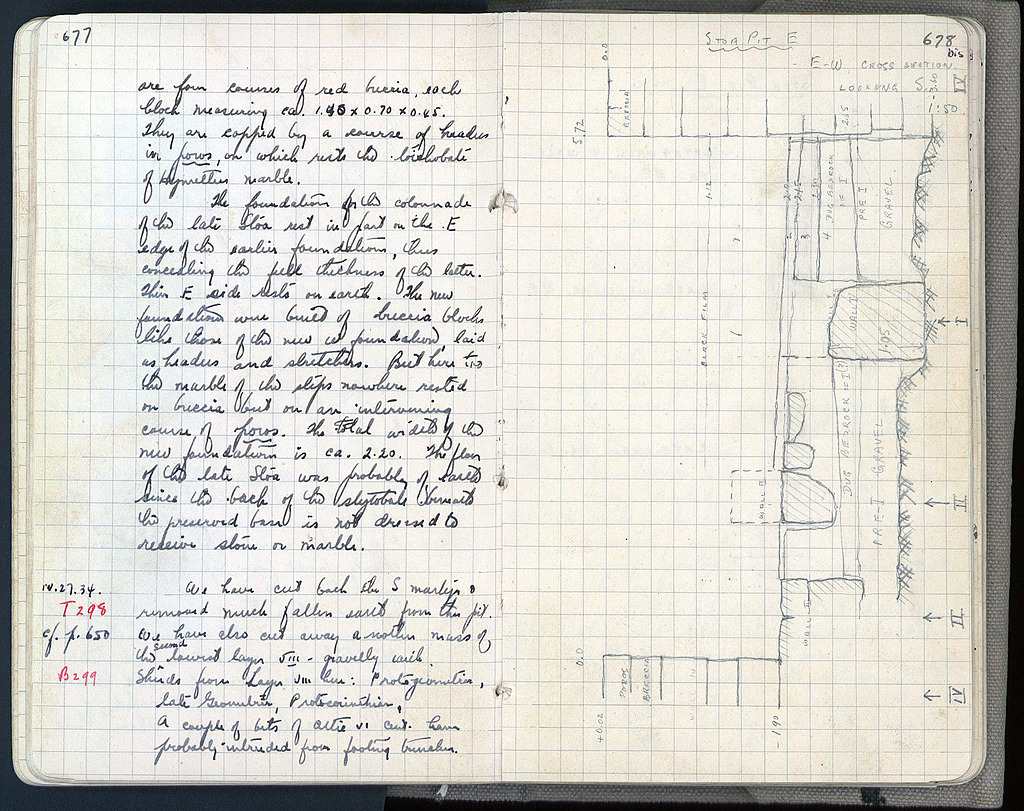 677
are four courses of red breccia, each
block measuring ca. 1.45 x 0.70 x 0.45.
They are capped by a course of headers
in poros, on which rests the toichobate
of Hymettus marble.
The foundations for the colonnade
of the late Stoa rest in part on the E
edge of the earlier foundations, thus
concealing the full thickness of the latter.
Their E side rests on earth. The new
foundations were built of breccia blocks
like those of the new W foundation, laid
as headers and stretchers. But here too
the marble of the steps nowhere rested
on breccia but on an intervening
course of poros. The total width of the
new foundation is ca. 2.20. The floor
of the late Stoa was probably of earth
since the back of the stylobate beneath
the preserved base is not dressed to
receive stone or marble.
IV.27.34. We have cut back the S martyr &
T298 removed much fallen earth from the pit.
cf. p. 650 We have also cut away another mass of
the second lowest layer VIII - gravelly with.
B299 Sherds from Layer VIII here: Protogeometric,
late Geometric, Protocorinthian,
A couple of bits of Attic VI cent. have
probably intruded from footing trenches.
678
bis
STOA PIT E
E-W CROSS SECTION
LOOKING S.
1:50
0.0
5.72
BRECCIA
2.25
-3.60
IV
1.12
2
3
4
DUG BEDROCK
OF I
PRE I
GRAVEL
BLACK FILM
1
WALL I
1.05
I
DUG BEDROCK OF I(?)
PRE-I GRAVEL
WALL II
II
WALL
II
0.0
+0.02
POROS
BRECCIA
-1.90
IV